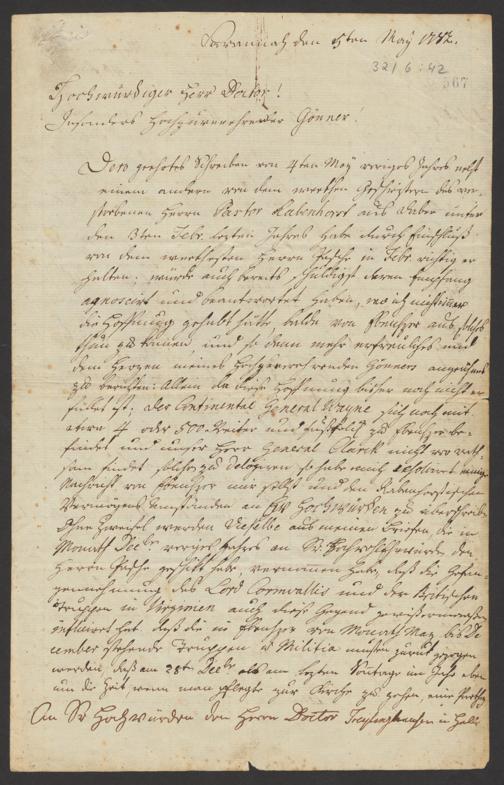 Savannah den 5ten May 1782.
321 6:42
567
Hochwürdiger Herr Doctor!
Insonders Hochzuverehrender Gönner.
Dero geehrtes Schreiben von 4ten May voriges Jahres nebst
einem andern von dem werthen Geschwistern des ver-
storbenen Herrn Pastor Rabenhorst aus Daber unter
den 13ten Febr. letzten Jahres habe durch Einschluß
von dem werthesten Herrn Pasche in Febr. richtig er
halten: würde auch bereits schuldigst deren Empfang
agnoscirt und beantwortet haben, wo ich nicht immer
die Hoffnung gehabt hätte, balde von Ebenezer aus, solches
thun zu können, und so denn mehr erfreuliches und
dem Herzen meines Hochzuverehrenden Gönners angenehmes
zu berichten: Allein da diese Hoffnung bisher noch nicht er
füllet ist; der Continental General Wayne sich noch mit
etwa 4 oder 500 Reiter und Fußvolck zu Ebenezer be-
findet und unser Herr General Clarck nicht vor rath-
sam findet solche zu delogiren so habe mich resolvirt einige
Nachricht von Ebenezer mir selbst und den Rabenhorstischen
Vermögens Umständen an Ew Hochwürden zu überschreiben
Ohne Zweifel werden Dieselbe aus meinen Briefen, die in
Monath Decbr voriges Jahres an Sr. Hochwohlehrwürden den
Herrn Pasche geschickt habe, vernommen haben, daß die Gefan-
gennehmung des Lord Cornwallis und der Britischen
Truppen in Virginien auch diese Gegend gewissermassen
influirt hat, daß die in Ebenezer von Monath May bis De
cember stehende Truppen u Militia musten zurück gezogen
werden, daß am 23t Decbr als am letzten Sontage im Jahr eben
um die Zeit, wenn man pflegte zur Kirche zu gehen, eine
An Sr Hochwürden den Herrn Doctor Freylinghausen in Halle